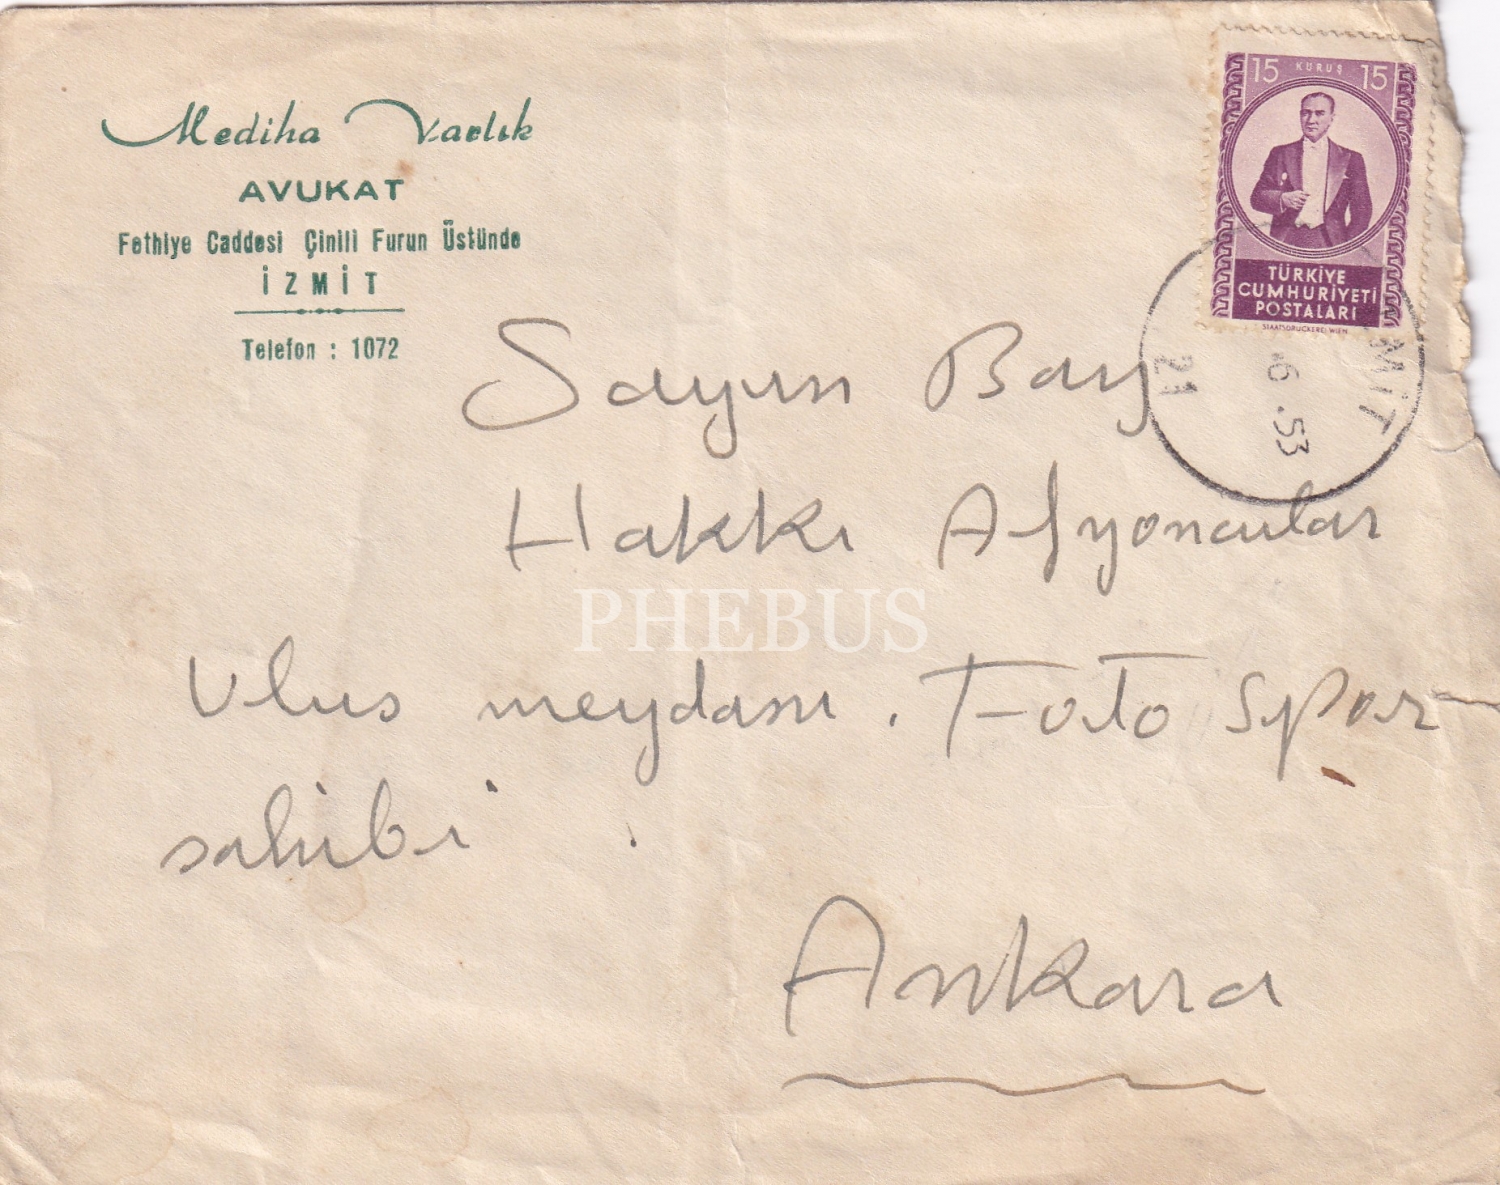 Mediha Varlık
AVUKAT
Fethiye Caddesi Çinili Furun Üstünde
İZMİT
Telefon : 1072
15 KURUŞ 15
TÜRKİYE
CUMHURİYETİ
POSTALARI
STAATSDRUCKEREI WIEN
MİT
6.53
21
Sayın Bay
Hakkı Afyoncular
Ulus meydanı. Foto Spor
sahibi
Ankara
PHEBUS